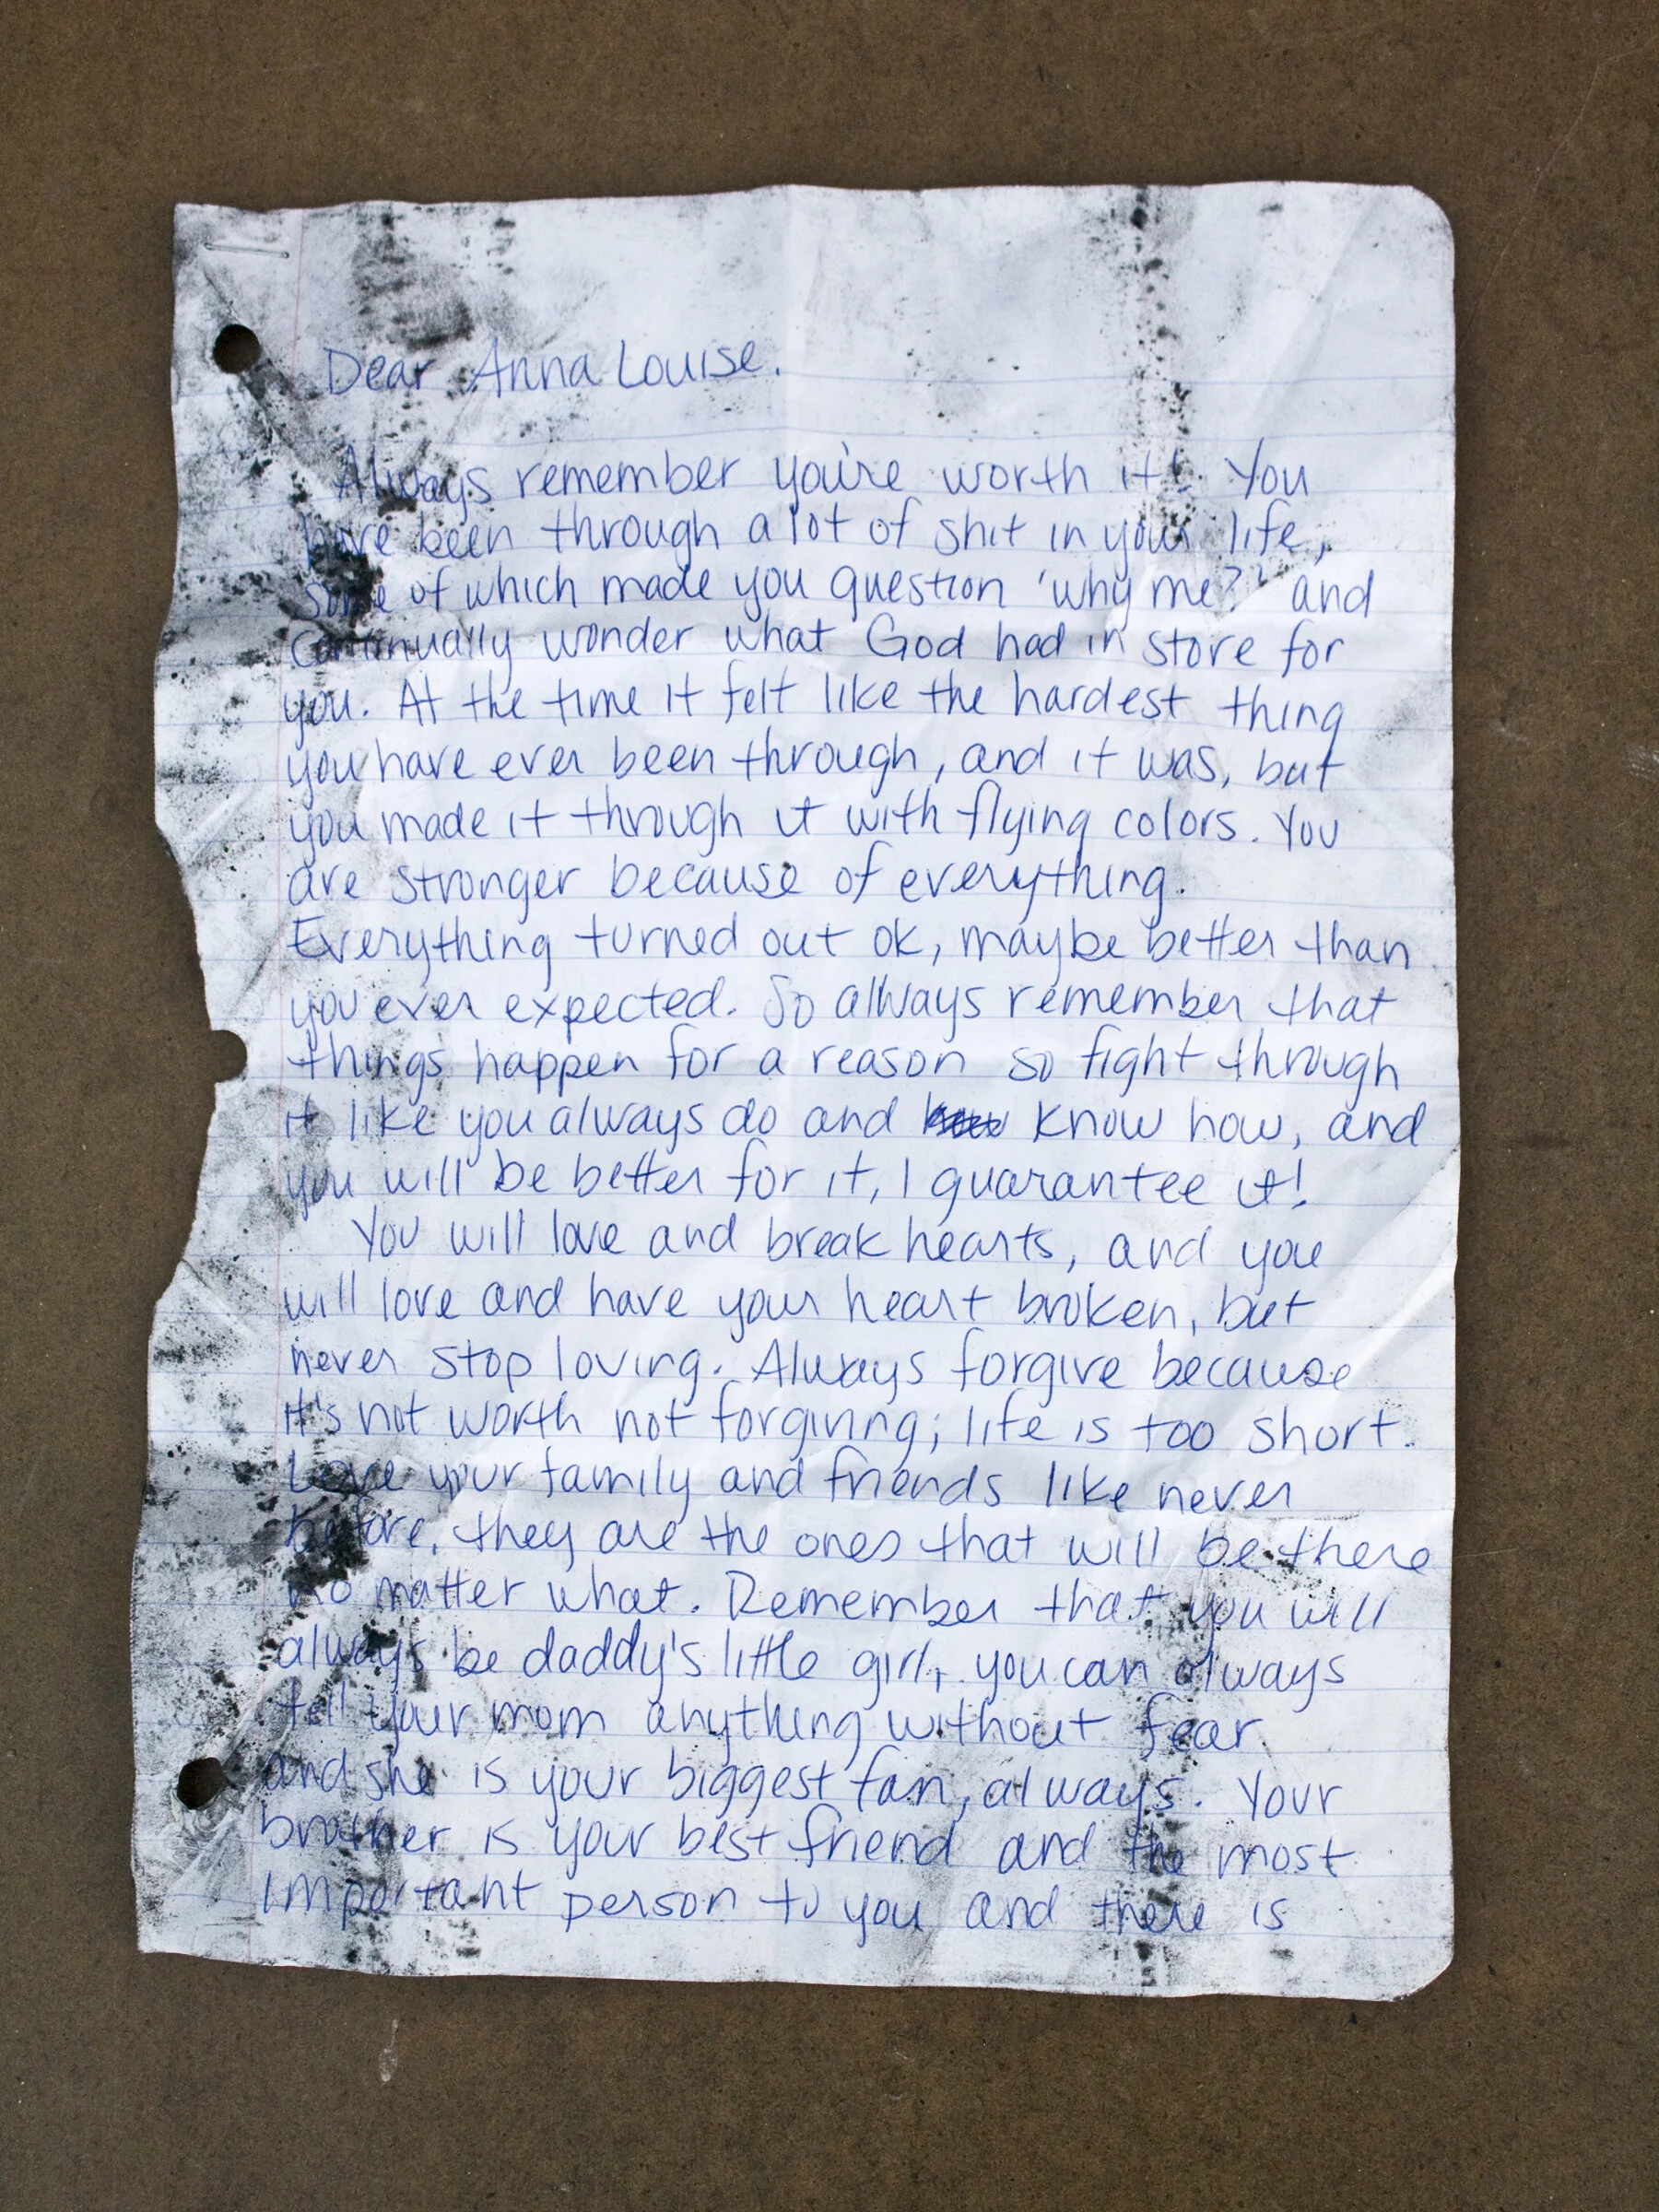 Dear Anna Louise.
Always remember you're worth it! You
have been through a lot of shit in your life,
some of which made you question 'why me?' and
continually wonder what God had in store for
you. At the time it felt like the hardest thing
you have ever been through, and it was, but
you made it through it with flying colors. You
are stronger because of everything.
Everything turned out ok, maybe better than
you ever expected. So always remember that
things happen for a reason so fight through
it like you always do and know how, and
you will be better for it, I guarantee it!
You will love and break hearts, and you
will love and have your heart broken, but
never stop loving. Always forgive because
it's not worth not forgiving; life is too short.
Love your family and friends like never
before, they are the ones that will be there
no matter what. Remember that you will
always be daddy's little girl, you can always
tell your mom anything without fear
and she is your biggest fan, always. Your
brother is your best friend and the most
important person to you and there is